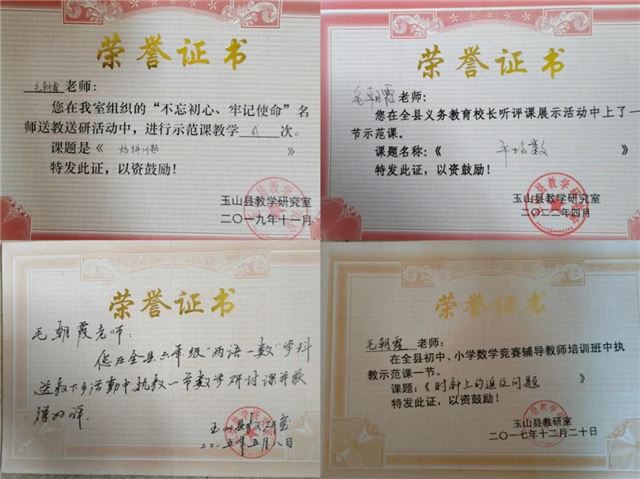 荣誉证书
毛朝霞老师：
您在我室组织的“不忘初心、牢记使命”名
师送教送研活动中，进行示范课教学 次。
课题是《 》
特发此证，以资鼓励！
玉山县教学研究室
二〇一九年十一月
荣誉证书
毛朝霞老师：
您在全县义务教育校长听评课展示活动中上了一
节示范课。
课题名称：《 平均数 》
特发此证，以资鼓励！
玉山县教学研究室
二〇二二年四月
荣誉证书
毛朝霞老师：
您在全县六年级“两语一数”学科
送教下乡活动中执教一节数学研讨课并获
玉山县教研室
二〇一五年五月八日
荣誉证书
毛朝霞 老师：
在全县初中、小学数学竞赛辅导教师培训班中执
教示范课一节。
课题：《 时钟上的追及问题 》
特发此证，以资鼓励！
玉山县教研室
二〇一七年十二月二十日